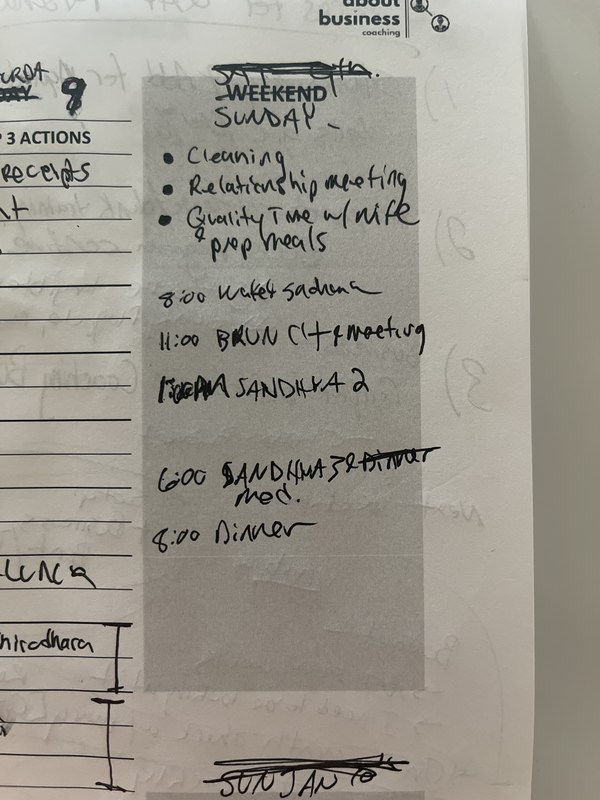 about
business
coaching
SAT 9th.
WEEKEND
SUNDAY -
• Cleaning
• Relationship meeting
• Quality Time w/ wife
& prep meals
8:00 Wake & sadhana
11:00 BRUNCH & meeting
SANDHYA 2
6:00 SANDHYA 3 & Dinner
med.
8:00 Dinner
SUN JAN 10
8
3 ACTIONS
receipts
LUNCH
hirodhara